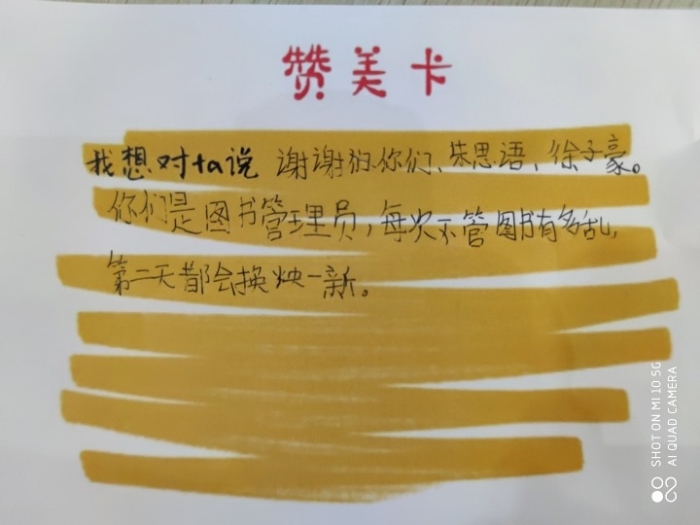 赞美卡
我想对ta说 谢谢你们、朱思语、徐子豪。
你们是图书管理员，每次不管图书有多乱，
第二天都会换焕一新。
SHOT ON MI 10 5G
AI QUAD CAMERA